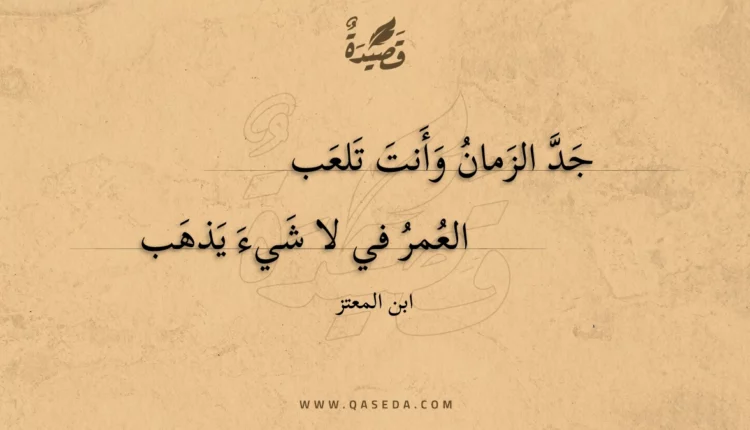 قَصِيْدَةٌ
جَدَّ الزَمانُ وَأَنتَ تَلعَب
العُمرُ في لا شَيءَ يَذهَب
ابن المعتز
WWW.QASEDA.COM